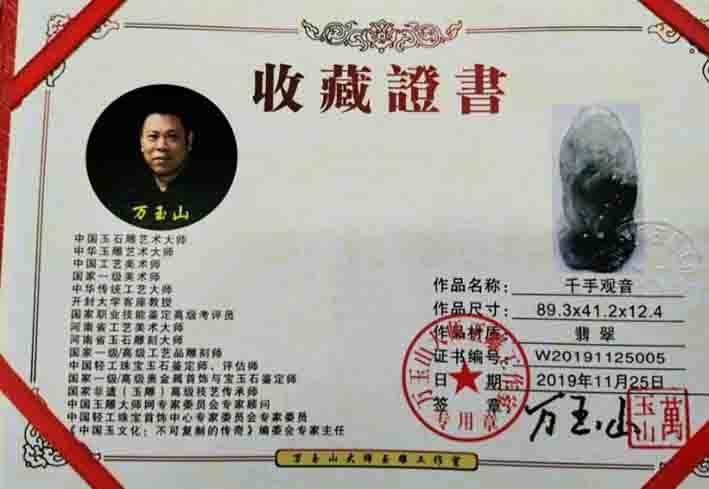 收藏證書
万玉山
中国玉石雕艺术大师
中华玉雕艺术大师
中国工艺美术师
国家一级美术师
中华传统工艺大师
开封大学客座教授
国家职业技能鉴定高级考评员
河南省工艺美术大师
河南省玉石雕刻大师
国家一级/高级工艺品雕刻师
中国轻工珠宝玉石鉴定师、评估师
国家一级/高级贵金属首饰与宝玉石鉴定师
国家非遗（玉雕）高级技艺传承师
中国玉雕大师网专家委员会专家顾问
中国轻工珠宝首饰中心专家委员会专家委员
《中国玉文化：不可复制的传奇》编委会专家主任
作品名称： 千手观音
作品尺寸： 89.3x41.2x12.4
作品材质： 翡翠
证书编号： W20191125005
日 期： 2019年11月25日
签 章： 万玉山
萬玉山
专用章
万玉山大师玉雕工作室